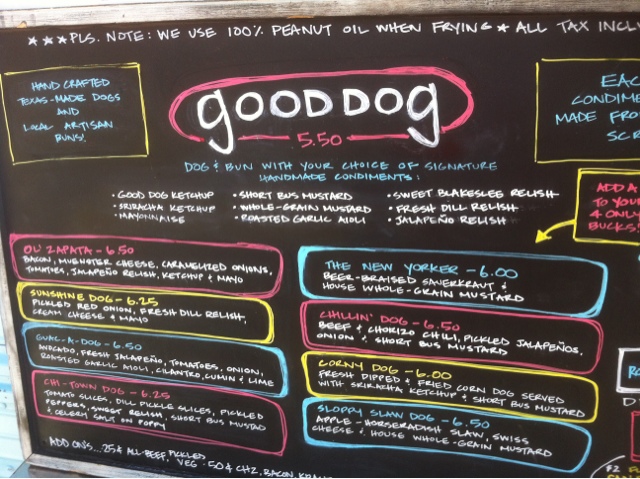 ★★★PLS. NOTE: WE USE 100% PEANUT OIL WHEN FRYING ★ ALL TAX INCL
HAND CRAFTED
TEXAS-MADE DOGS
AND
LOCAL ARTISAN
BUNS!
GOOD DOG
5.50
DOG & BUN WITH YOUR CHOICE OF SIGNATURE
HANDMADE CONDIMENTS:
• GOOD DOG KETCHUP
• SRIRACHA KETCHUP
• MAYONNAISE
• SHORT BUS MUSTARD
• WHOLE-GRAIN MUSTARD
• ROASTED GARLIC AIOLI
• SWEET BLAKESLEE RELISH
• FRESH DILL RELISH
• JALAPEÑO RELISH
EAC
CONDIME
MADE FRO
SC
ADD A
TO YOU
4 ONL
BUCKS!
OL' ZAPATA - 6.50
BACON, MUENSTER CHEESE, CARAMELIZED ONIONS,
TOMATOES, JALAPEÑO RELISH, KETCHUP & MAYO
SUNSHINE DOG - 6.25
PICKLED RED ONION, FRESH DILL RELISH,
CREAM CHEESE & MAYO
GUAC-A-DOG - 6.50
AVOCADO, FRESH JALAPEÑO, TOMATOES, ONION,
ROASTED GARLIC AIOLI, CILANTRO, CUMIN & LIME
CHI-TOWN DOG - 6.25
TOMATO SLICES, DILL PICKLE SLICES, PICKLED
PEPPERS, SWEET RELISH, SHORT BUS MUSTAD
& CELERY SALT ON POPPY
THE NEW YORKER - 6.00
BEER-BRAISED SAUERKRAUT &
HOUSE WHOLE-GRAIN MUSTARD
CHILLIN' DOG - 6.50
BEEF & CHORIZO CHILI, PICKLED JALAPEÑOS,
ONION & SHORT BUS MUSTARD
CORNY DOG - 6.00
FRESH DIPPED & FRIED CORN DOG SERVED
WITH SRIRACHA KETCHUP & SHORT BUS MUSTARD
SLOPPY SLAW DOG - 6.50
APPLE-HORSERADISH SLAW, SWISS
CHEESE & HOUSE WHOLE-GRAIN MUSTARD
ADD ONS... 25¢ ALL-BEEF, PICKLED
VEG - 50¢ CHZ, BACON, KRAU